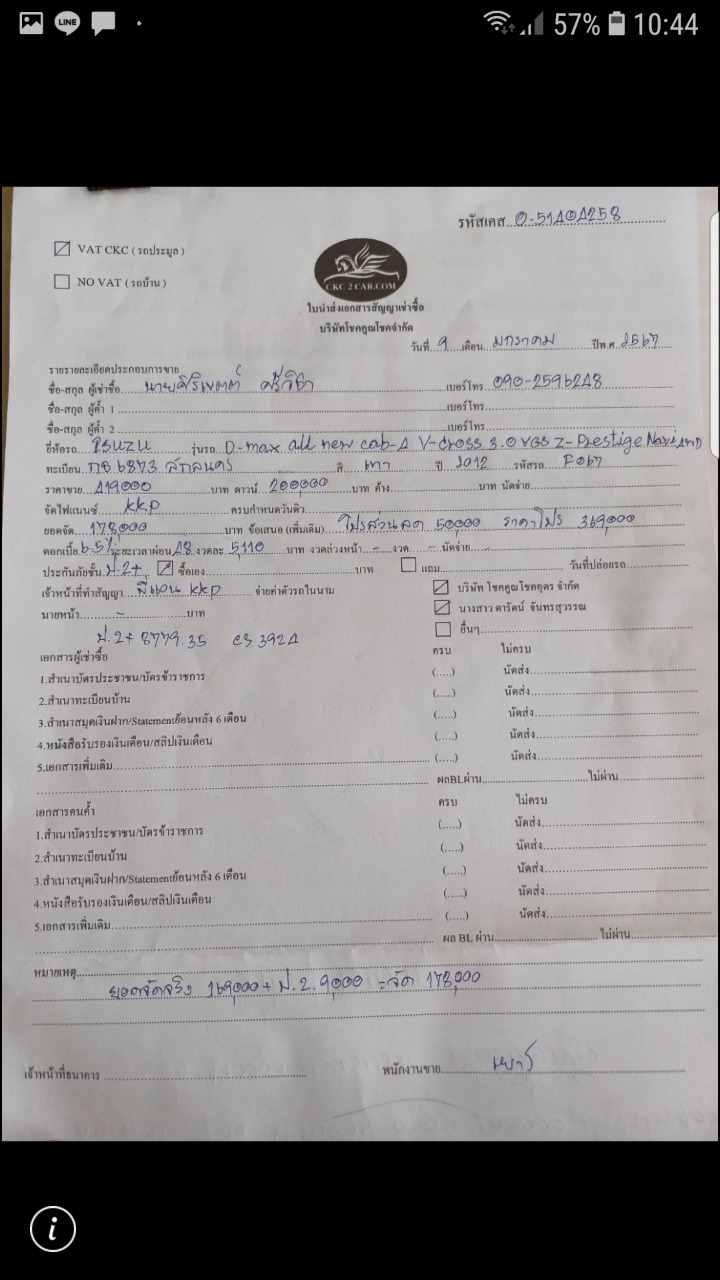 LINE 57% 10:44
รหัสเคส 0-51404258
VAT CKC ( รถประมูล )
NO VAT ( รถบ้าน )
CKC 2 CAR.COM
ใบนำส่งเอกสารสัญญาเช่าซื้อ
บริษัทโชคคูณโชคจำกัด
วันที่ 9 เดือน มกราคม ปีพ.ศ 2567
รายรายละเอียดประกอบการขาย
ชื่อ-สกุล ผู้เช่าซื้อ เบอร์โทร 090-2596248
ชื่อ-สกุล ผู้ค้ำ 1 เบอร์โทร
ชื่อ-สกุล ผู้ค้ำ 2 เบอร์โทร
ยี่ห้อรถ Isuzu รุ่นรถ D-max all new cab-4 V-cross 3.0 VGS Z-Prestige Navi 4WD
ทะเบียน กง 6873 สกลนคร สี เทา ปี 2012 รหัสรถ F067
ราคาขาย 419000 บาท ดาวน์ 200,000 บาท ค้าง บาท นัดจ่าย
จัดไฟแนนซ์ kkp ครบกำหนดวันคิว
ยอดจัด 178,000 บาท ข้อเสนอ (เพิ่มเติม) โปรส่วนลด 50,000 ราคาโปร 369,000
ดอกเบี้ย 6.5% ระยะเวลาผ่อน 48 งวดละ 5,110 บาท งวดล่วงหน้า - งวด - นัดจ่าย -
ประกันภัยชั้น ป.2+ ซื้อเอง บาท แถม วันที่ปล่อยรถ
เจ้าหน้าที่ทำสัญญา kkp จ่ายค่าตัวรถในนาม บริษัท โชคคูณโชคอุดร จำกัด
นายหน้า - บาท นางสาว ดารัตน์ จันทรสุวรรณ
อื่นๆ
ป.2+ 8779.35 cs 3924
เอกสารผู้เช่าซื้อ ครบ ไม่ครบ
1.สำเนาบัตรประชาชน/บัตรข้าราชการ (.....) นัดส่ง
2.สำเนาทะเบียนบ้าน (.....) นัดส่ง
3.สำเนาสมุดเงินฝาก/Statementย้อนหลัง 6 เดือน (.....) นัดส่ง
4.หนังสือรับรองเงินเดือน/สลิปเงินเดือน (.....) นัดส่ง
5.เอกสารเพิ่มเติม (.....) นัดส่ง
ผลBLผ่าน ไม่ผ่าน
เอกสารคนค้ำ ครบ ไม่ครบ
1.สำเนาบัตรประชาชน/บัตรข้าราชการ (.....) นัดส่ง
2.สำเนาทะเบียนบ้าน (.....) นัดส่ง
3.สำเนาสมุดเงินฝาก/Statementย้อนหลัง 6 เดือน (.....) นัดส่ง
4.หนังสือรับรองเงินเดือน/สลิปเงินเดือน (.....) นัดส่ง
5.เอกสารเพิ่มเติม (.....) นัดส่ง
ผล BL ผ่าน ไม่ผ่าน
หมายเหตุ
ยอดจัดจริง 169,000 + ป.2. 9,000 = จัด 178,000
เจ้าหน้าที่ธนาคาร พนักงานขาย